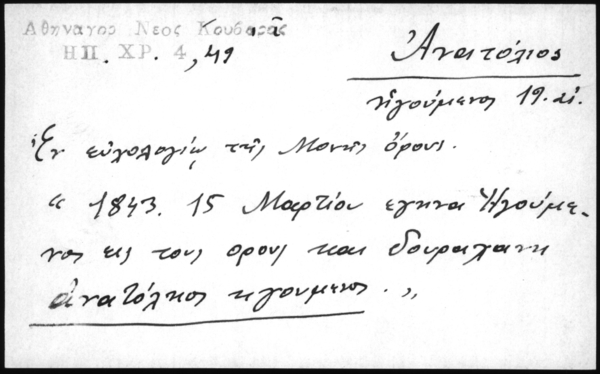 Αθηναγος Νεος Κουβαρᾶς
ΗΠ. ΧΡ. 4, 49
Ἀνατόλιος
ἡγούμενος 19. αἰ.
Ἐν εὐχολογίῳ τῆς Μονῆς ὄρους.
" 1843. 15 Μαρτίου εγηνα Ηγούμε-
νος εις τους ορους και δουραχανη
ἀνατόληος ηγουμενος. "